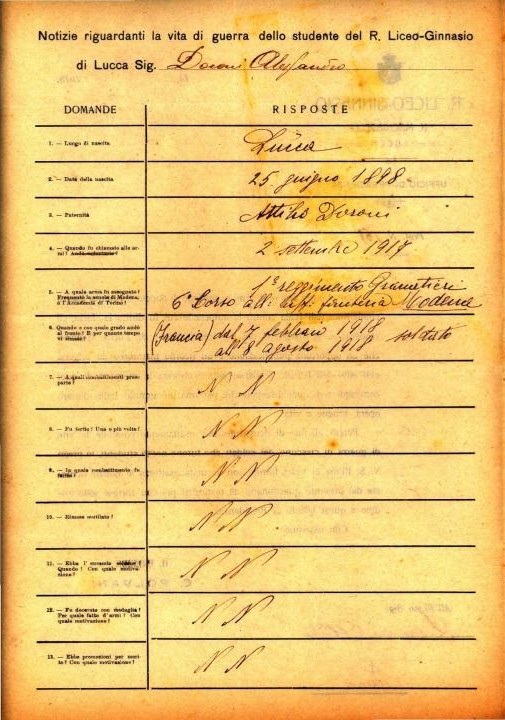 Notizie riguardanti la vita di guerra dello studente del R. Liceo-Ginnasio
di Lucca Sig. Doroni Alessandro
DOMANDE
RISPOSTE
1. — Luogo di nascita
Lucca
2. — Data della nascita
25 giugno 1898
3. — Paternità
Attilio Doroni
4. — Quando fu chiamato alle armi? Andò volontario?
2 settembre 1917
5. — A quale arma fu assegnato?
Frequentò la scuola di Modena,
o l'Accademia di Torino?
1º reggimento Granatieri
6º Corso all: uff: fanteria Modena
6. Quando e con quale grado andò
al fronte? E per quanto tempo
vi rimase?
(Francia) dal 7 febbraio 1918
all' 8 agosto 1918 soldato
7. — A quali combattimenti prese
parte?
N N
8. — Fu ferito? Una o più volte?
N N
9. — In quale combattimento fu
ferito?
N N
10. — Rimase mutilato?
N N
11. — Ebbe l'encomio
Quando? Con quale motivazione?
N N
12. — Fu decorato con medaglia?
Per quale fatto d'armi? Con
quale motivazione?
N N
13. — Ebbe promozioni per merito? Con quale motivazione?
N N